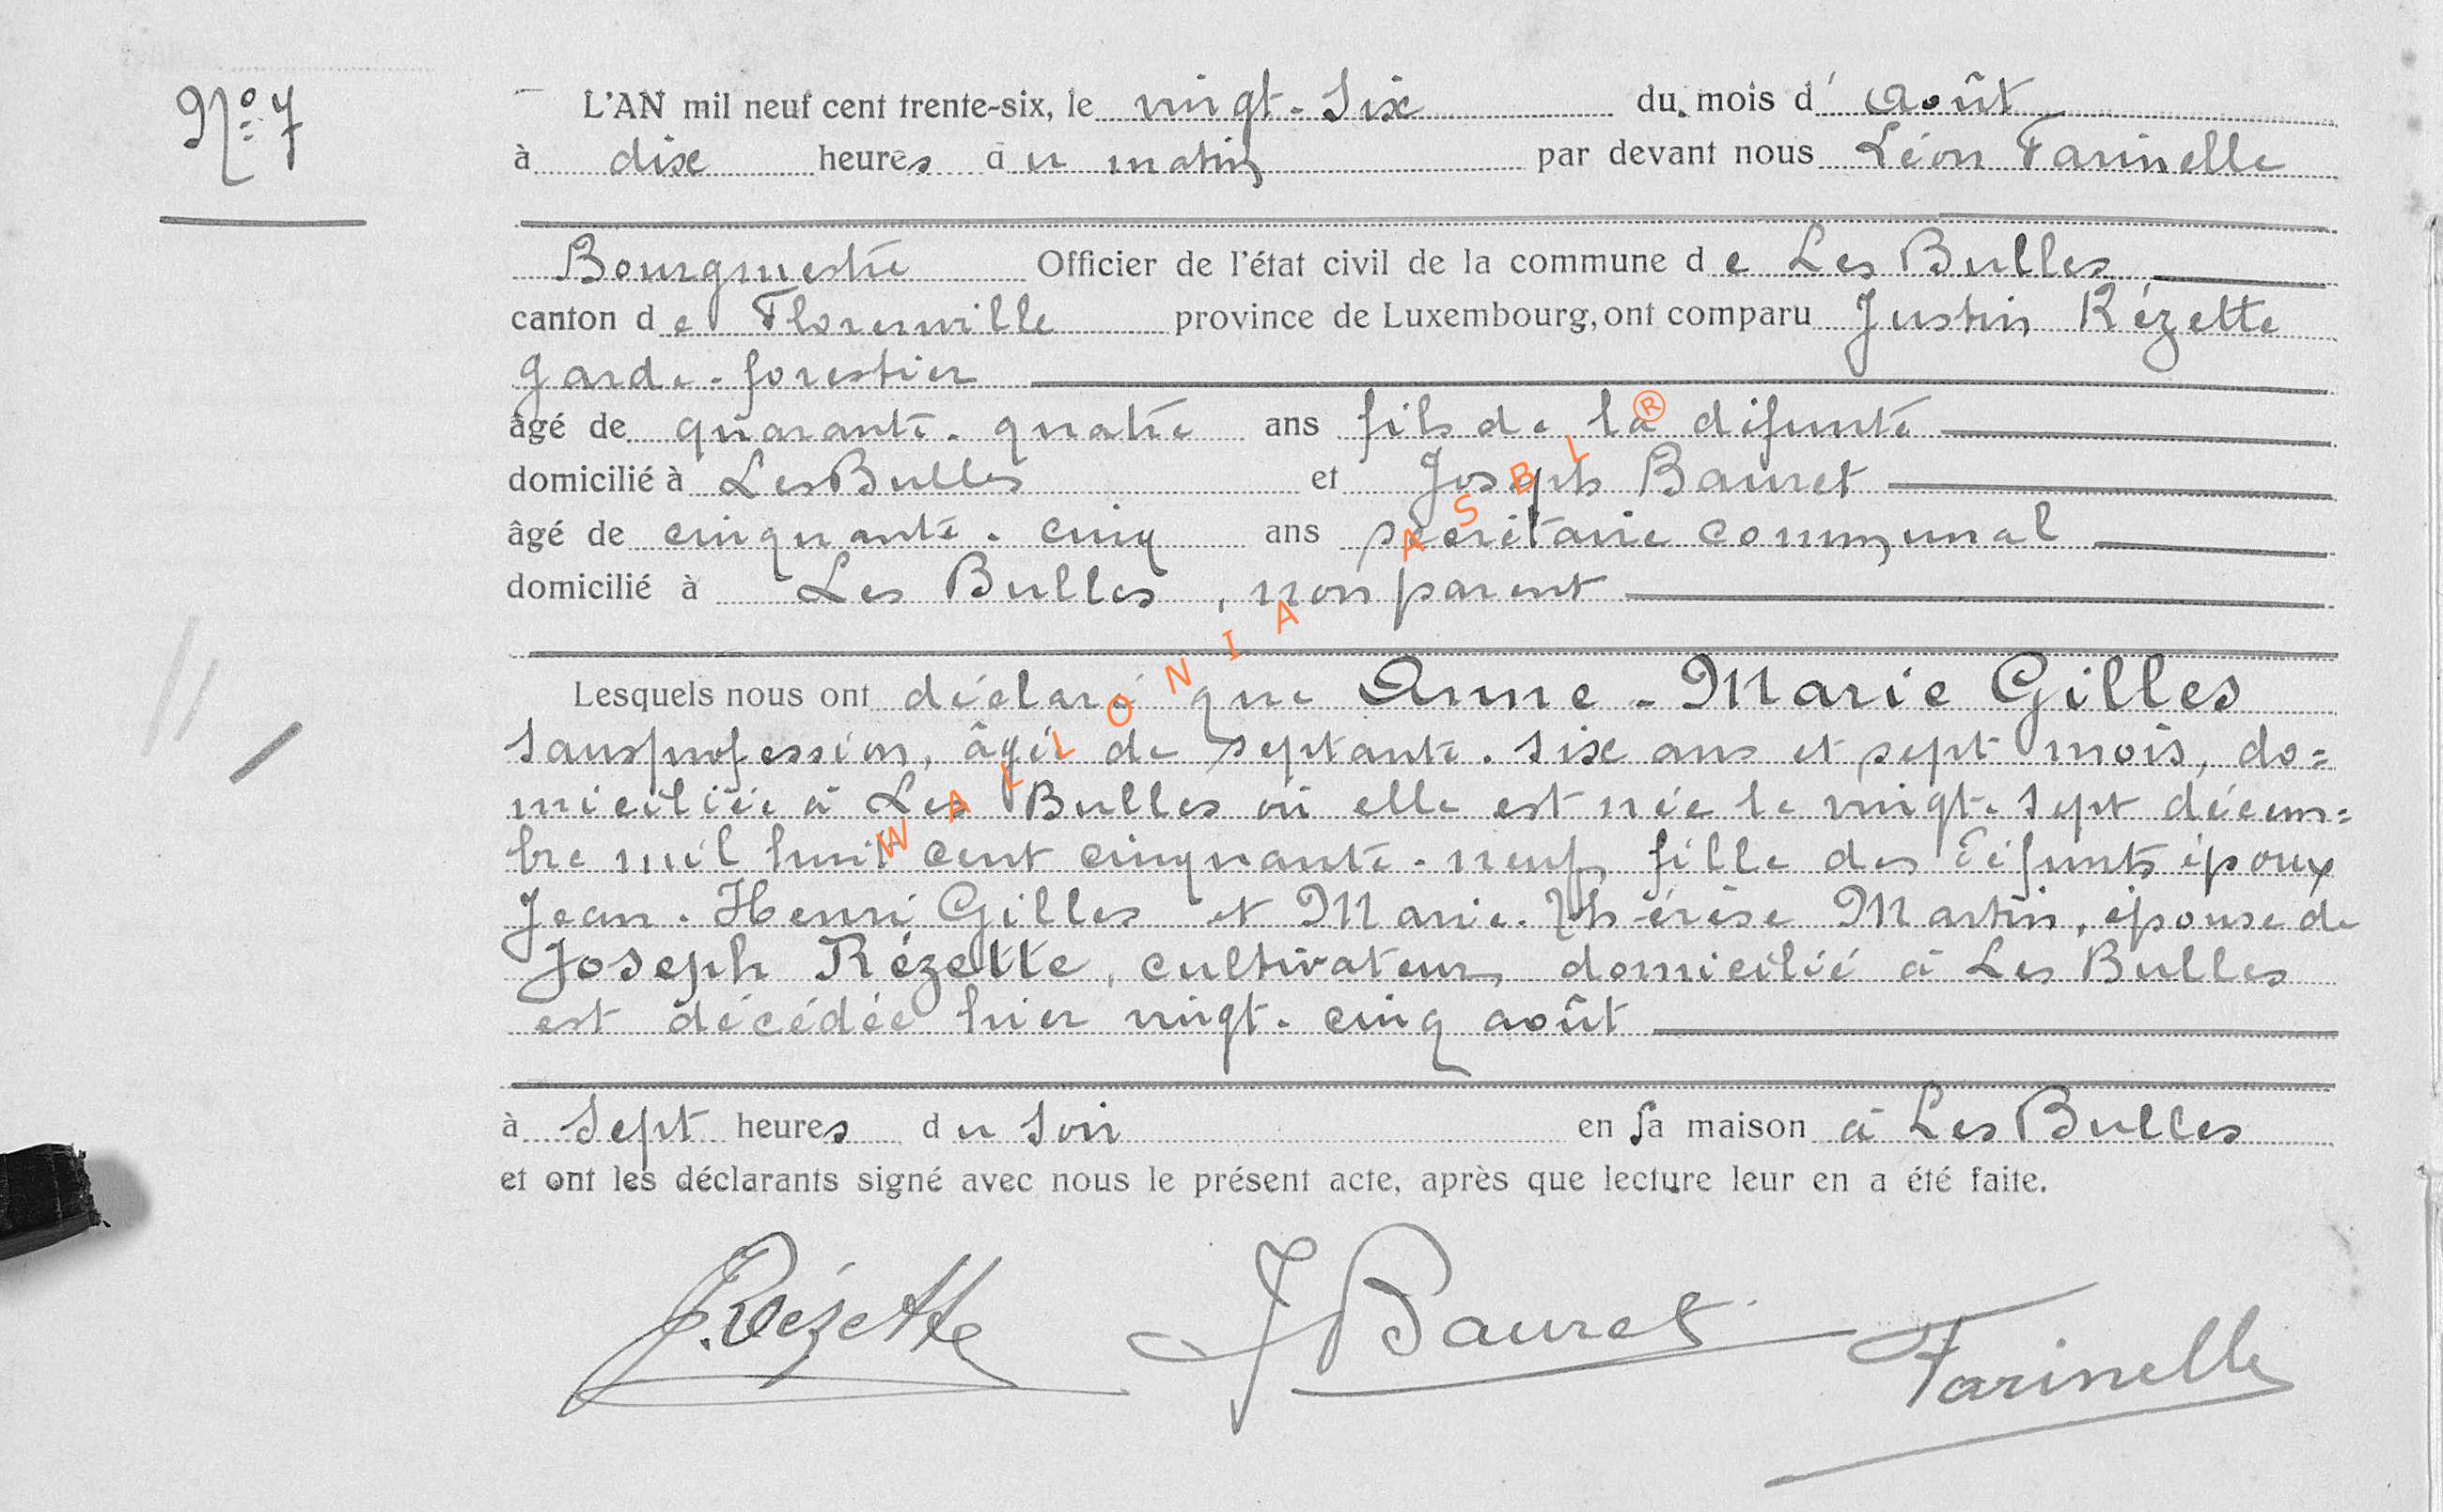 Nº 7
L'AN mil neuf cent trente-six, le vingt-six du mois d'août
à dix heures du matin par devant nous Léon Farinelle
Bourgmestre Officier de l'état civil de la commune de Les Bulles
canton de Florenville province de Luxembourg, ont comparu Justin Rézette
garde-forestier
âgé de quarante-quatre ans fils de la défunte
domicilié à Les Bulles et Joseph Bauret
âgé de cinquante-cinq ans secrétaire communal
domicilié à Les Bulles, non parent
Lesquels nous ont déclaré que Anne-Marie Gilles
sans profession, âgée de septante-six ans et sept mois, do=
miciliée à Les Bulles où elle est née le vingt-sept décem=
bre mil huit cent cinquante-neuf, fille des défunts époux
Jean-Henri Gilles et Marie-Thérèse Martin, épouse de
Joseph Rézette, cultivateur, domicilié à Les Bulles
est décédée hier vingt-cinq août
à sept heures du soir en sa maison à Les Bulles
et ont les déclarants signé avec nous le présent acte, après que lecture leur en a été faite.
J. Rézette J Bauret Farinelle
WALLONIA ASBL ®